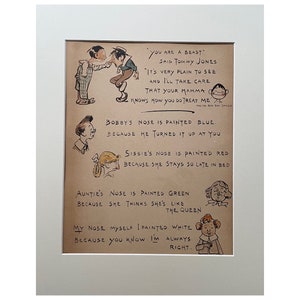 "YOU ARE A BEAST"
SAID TOMMY JONES
"IT'S VERY PLAIN TO SEE
AND I'LL TAKE CARE
THAT YOUR MAMMA
KNOWS HOW YOU DO TREAT ME
BOBBY'S NOSE IS PAINTED BLUE
BECAUSE HE TURNED IT UP AT YOU
SISSIE'S NOSE IS PAINTED RED
BECAUSE SHE STAYS SO LATE IN BED
AUNTIE'S NOSE IS PAINTED GREEN
BECAUSE SHE THINKS SHE'S LIKE
THE QUEEN
MY NOSE MYSELF I PAINTED WHITE
BECAUSE YOU KNOW I'M ALWAYS
RIGHT